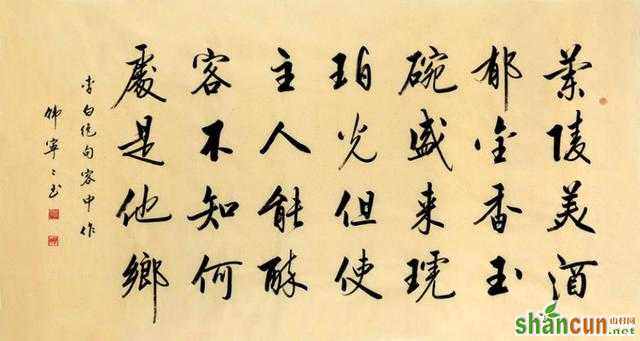 蘭陵美酒
郁金香玉
碗盛来琥
珀光但使
主人能醉
客不知何
處是他鄉
李白绝句客中作
韩寧〻书
shancun
山村网
.net